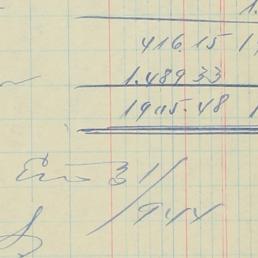 416.15
1.489 33
1905.48
Ero 31/944